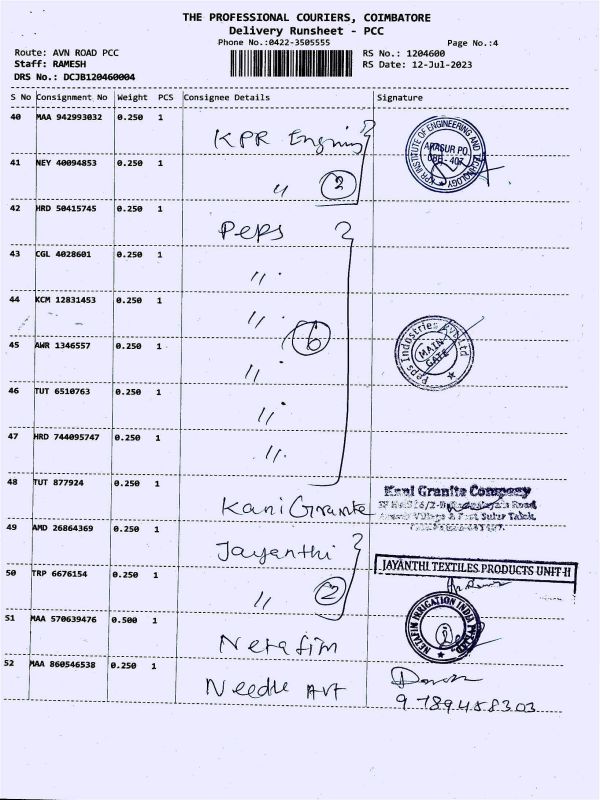 THE PROFESSIONAL COURIERS, COIMBATORE
Delivery Runsheet - PCC
Phone No.:0422-3505555 Page No.:4
Route: AVN ROAD PCC RS No.: 1204600
Staff: RAMESH RS Date: 12-Jul-2023
DRS No.: DCJB120460004
S No Consignment No Weight PCS Consignee Details Signature
40 MAA 942993032 0.250 1
KPR Engning
KPR INSTITUTE OF ENGINEERING AND TECHNOLOGY
ARASUR PO.
CBE - 407.
41 NEY 40094853 0.250 1
" 2
42 HRD 50415745 0.250 1
Peps
43 CGL 4028601 0.250 1
"
44 KCM 12831453 0.250 1
" 6
Peps Industries Pvt Ltd
MAIN GATE
45 AWR 1346557 0.250 1
"
46 TUT 6510763 0.250 1
"
47 HRD 744095747 0.250 1
"
48 TUT 877924 0.250 1
Kani Granite
Kani Granite Company
Road,
Village & Post Sulur Taluk,
49 AMD 26864369 0.250 1
Jayanthi
JAYANTHI TEXTILES PRODUCTS UNIT-II
50 TRP 6676154 0.250 1
" 2
51 MAA 570639476 0.500 1
Netafim
NETAFIM IRRIGATION INDIA PVT LTD.
52 MAA 860546538 0.250 1
Needle Art
9789458303